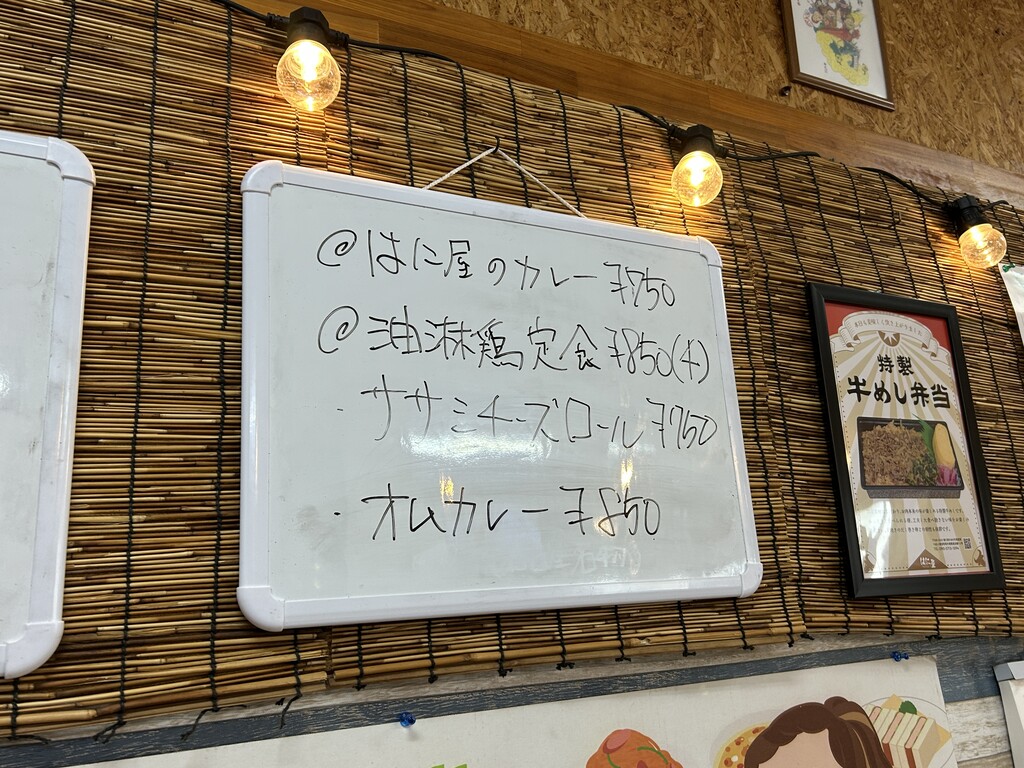 @はに屋のカレー ¥750
@油淋鶏定食 ¥850(4)
・ササミチーズロール ¥750
・オムカレー ¥850
特製
牛めし弁当
はに屋